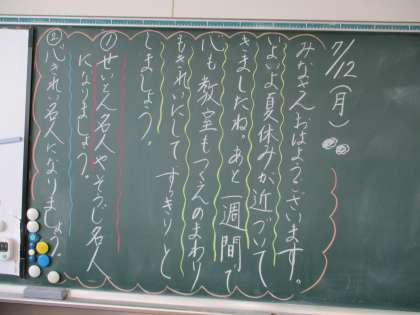 7/12(月)
みなさんおはようございます。い
よいよ夏休みが近づいて
きましたね。あと一週間で
心も教室もつくえのまわり
もきれいにして すっきりと
しましょう。
①せいとん名人やそうじ名人
になりましょう。
②じきれい名人になりましょう。